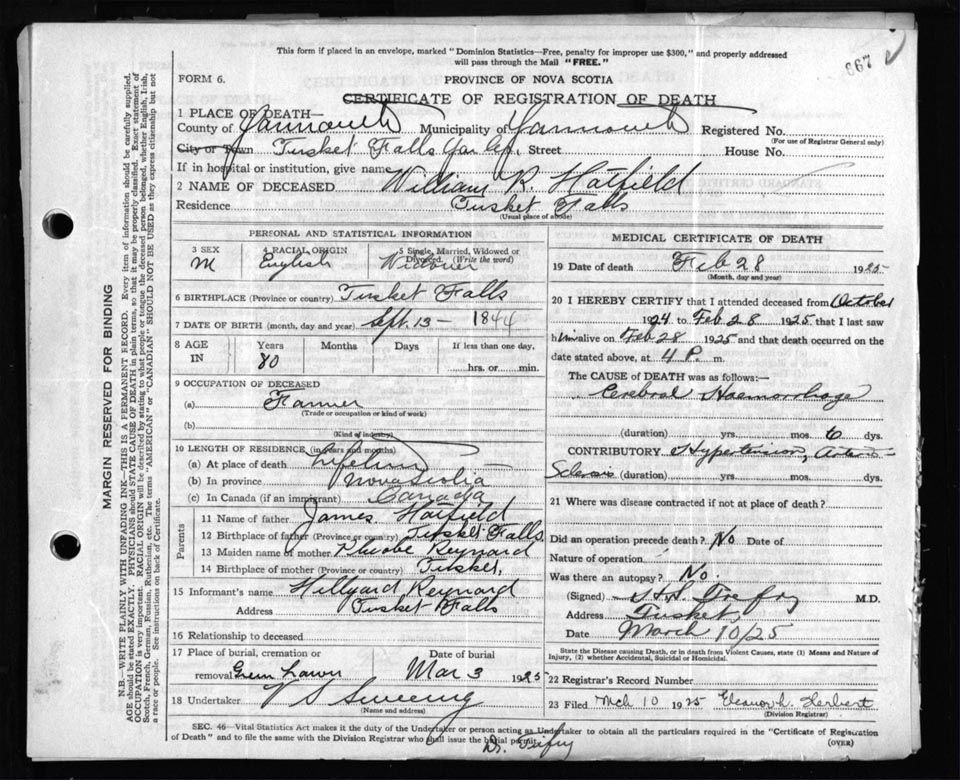 This form if placed in an envelope, marked "Dominion Statistics—Free, penalty for improper use $300," and properly addressed
will pass through the Mail "FREE."
667
FORM 6.
PROVINCE OF NOVA SCOTIA
CERTIFICATE OF REGISTRATION OF DEATH
1 PLACE OF DEATH—
County of Yarmouth Municipality of Yarmouth Registered No.
(For use of Registrar General only)
City or Town Tusket Falls Street House No.
If in hospital or institution, give name
2 NAME OF DECEASED William R. Hatfield
Residence Tusket Falls
(Usual place of abode)
PERSONAL AND STATISTICAL INFORMATION
3 SEX M 4 RACIAL ORIGIN English 5 Single, Married, Widowed or Divorced. (Write the word) Widower
6 BIRTHPLACE (Province or country) Tusket Falls
7 DATE OF BIRTH (month, day and year) Sept. 13 - 1844
8 AGE IN Years 80 Months Days If less than one day, hrs. or min.
9 OCCUPATION OF DECEASED
(a) Farmer
(Trade or occupation or kind of work)
(b)
(Kind of industry)
10 LENGTH OF RESIDENCE (in years and months)
(a) At place of death Lifetime
(b) In province Nova Scotia
(c) In Canada (if an immigrant) Canada
Parents
11 Name of father James Hatfield
12 Birthplace of father (Province or country) Tusket Falls
13 Maiden name of mother Reynard
14 Birthplace of mother (Province or country) Tusket,
15 Informant's name Hillyard Reynard
Address Tusket Falls
16 Relationship to deceased
17 Place of burial, cremation or removal Date of burial
Green Lawn Mar 3 1925
18 Undertaker V S Sweeny
(Name and address)
MEDICAL CERTIFICATE OF DEATH
19 Date of death Feb 28 1925
(Month, day and year)
20 I HEREBY CERTIFY that I attended deceased from October
1924 to Feb 28 1925 that I last saw
him alive on Feb 28 1925 and that death occurred on the
date stated above, at 4 P. m.
The CAUSE of DEATH was as follows:—
Cerebral Haemorrhage
(duration) yrs. mos. 6 dys.
CONTRIBUTORY Hypertension, Arterio-
Sclerosis (duration) yrs. mos. dys.
21 Where was disease contracted if not at place of death?
Did an operation precede death? No Date of
Nature of operation
Was there an autopsy? No.
(Signed) Trefry M.D.
Address Tusket,
Date March 10/25
State the Disease causing Death, or in death from Violent Causes, state (1) Means and Nature of
Injury, (2) whether Accidental, Suicidal or Homicidal.
22 Registrar's Record Number
23 Filed Mch 10 1925 Herbert
(Division Registrar)
SEC. 46—Vital Statistics Act makes it the duty of the Undertaker or person acting as Undertaker to obtain all the particulars required in the "Certificate of Registration
of Death" and to file the same with the Division Registrar who shall issue the burial permit.
(OVER)
Dr. Trefry
MARGIN RESERVED FOR BINDING
N.B.—WRITE PLAINLY WITH UNFADING INK—THIS IS A PERMANENT RECORD. Every item of information should be carefully supplied.
AGE should be stated EXACTLY. PHYSICIANS should STATE CAUSE OF DEATH in plain terms, so that it may be properly classified. Exact statement of
OCCUPATION is very important. RACIAL ORIGIN will be described by stating to what people or tongue the deceased person belonged, whether English, Irish,
Scotch, French, German, Russian, Ruthenian, etc. The terms "AMERICAN" or "CANADIAN" SHOULD NOT BE USED as they express citizenship but not
a race or people. See instructions on back of Certificate.